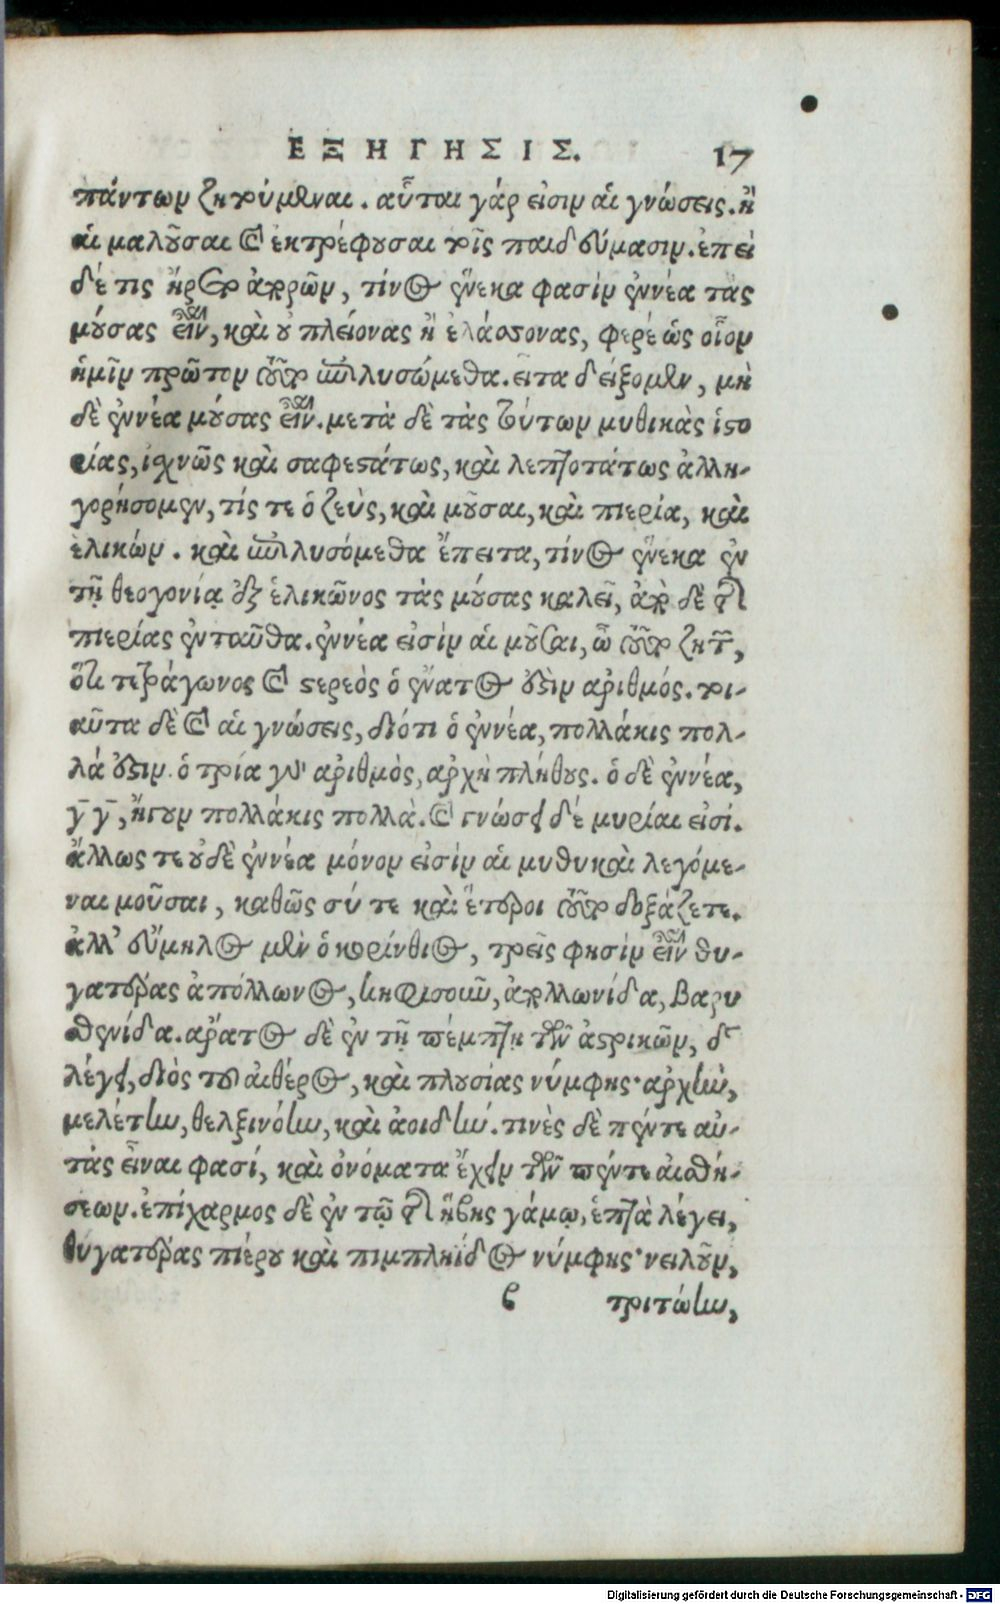 ΕΞΗΓΗΣΙΣ. 17
πάντων ζητούμεναι. αὗται γάρ εἰσιν αἱ γνώσεις. ἢ
αἱ μαιοῦσαι καὶ ἐκτρέφουσαι τοῖς παιδεύμασιν. ἐπεὶ
δέ τις ἤρετο ἀπορῶν, τίνος ἕνεκα φασὶν ἐννέα τὰς
μούσας εἶναι, καὶ οὐ πλείονας ἢ ἐλάσσονας, φερέ ὡς οἷον
ἡμῖν πρῶτον τοῦτο διαλυσώμεθα. εἶτα δείξομεν, μὴ
δὲ ἐννέα μούσας εἶναι. μετὰ δὲ τὰς τούτων μυθικὰς ἱστο
ρίας, ἰσχνῶς καὶ σαφεστάτως, καὶ λεπτοτάτως ἀλλη-
γορήσομεν, τίς τε ὁ ζεὺς, καὶ μοῦσαι, καὶ πιερία, καὶ
ἑλικών. καὶ διαλυσόμεθα ἔπειτα, τίνος ἕνεκα ἐν
τῇ θεογονίᾳ ἐξ ἑλικῶνος τὰς μούσας καλεῖ, ἀπὸ δὲ τῆς
πιερίας ἐνταῦθα. ἐννέα εἰσὶν αἱ μοῦσαι, ὦ τοῦτο ζητῶν,
ὅτι τετράγωνος καὶ στερεὸς ὁ ἔνατος ἐστὶν ἀριθμός. τοι-
αῦτα δὲ καὶ αἱ γνώσεις, διότι ὁ ἐννέα, πολλάκις πολ-
λά ἐστιν. ὁ τρία γὰρ ἀριθμὸς, ἀρχὴ πλήθους. ὁ δὲ ἐννέα,
γ̄ γ̄, ἤγουν πολλάκις πολλὰ. καὶ γνώσεις δέ μυρίαι εἰσί.
ἄλλως τε οὐδὲ ἐννέα μόνον εἰσὶν αἱ μυθικαὶ λεγόμε-
ναι μοῦσαι, καθὼς σύ τε καὶ ἕτεροι τοῦτο δοξάζετε.
ἀλλ' εὔμηλος μὲν ὁ κορίνθιος, τρεῖς φησὶν εἶναι θυ-
γατέρας ἀπόλλωνος, κηφισοῦν, ἀπολλωνίδα, βαρυ
σθενίδα. ἄρατος δὲ ἐν τῇ πέμπτῃ τῶν ἀστρικῶν, δʹ
λέγει, διὸς τοῦ αἰθέρος, καὶ πλουσίας νύμφης· ἀρχὴν,
μελέτην, θελξινόην, καὶ ἀοιδήν. τινὲς δὲ πέντε αὐ-
τὰς εἶναι φασί, καὶ ὀνόματα ἔχειν τῶν πέντε αἰσθή-
σεων. ἐπίχαρμος δὲ ἐν τῷ τῆς ἥβης γάμῳ, ἑπτὰ λέγει,
θυγατέρας πιέρου καὶ πιμπληΐδος νύμφης· νειλοῦν,
β τριτώνην,